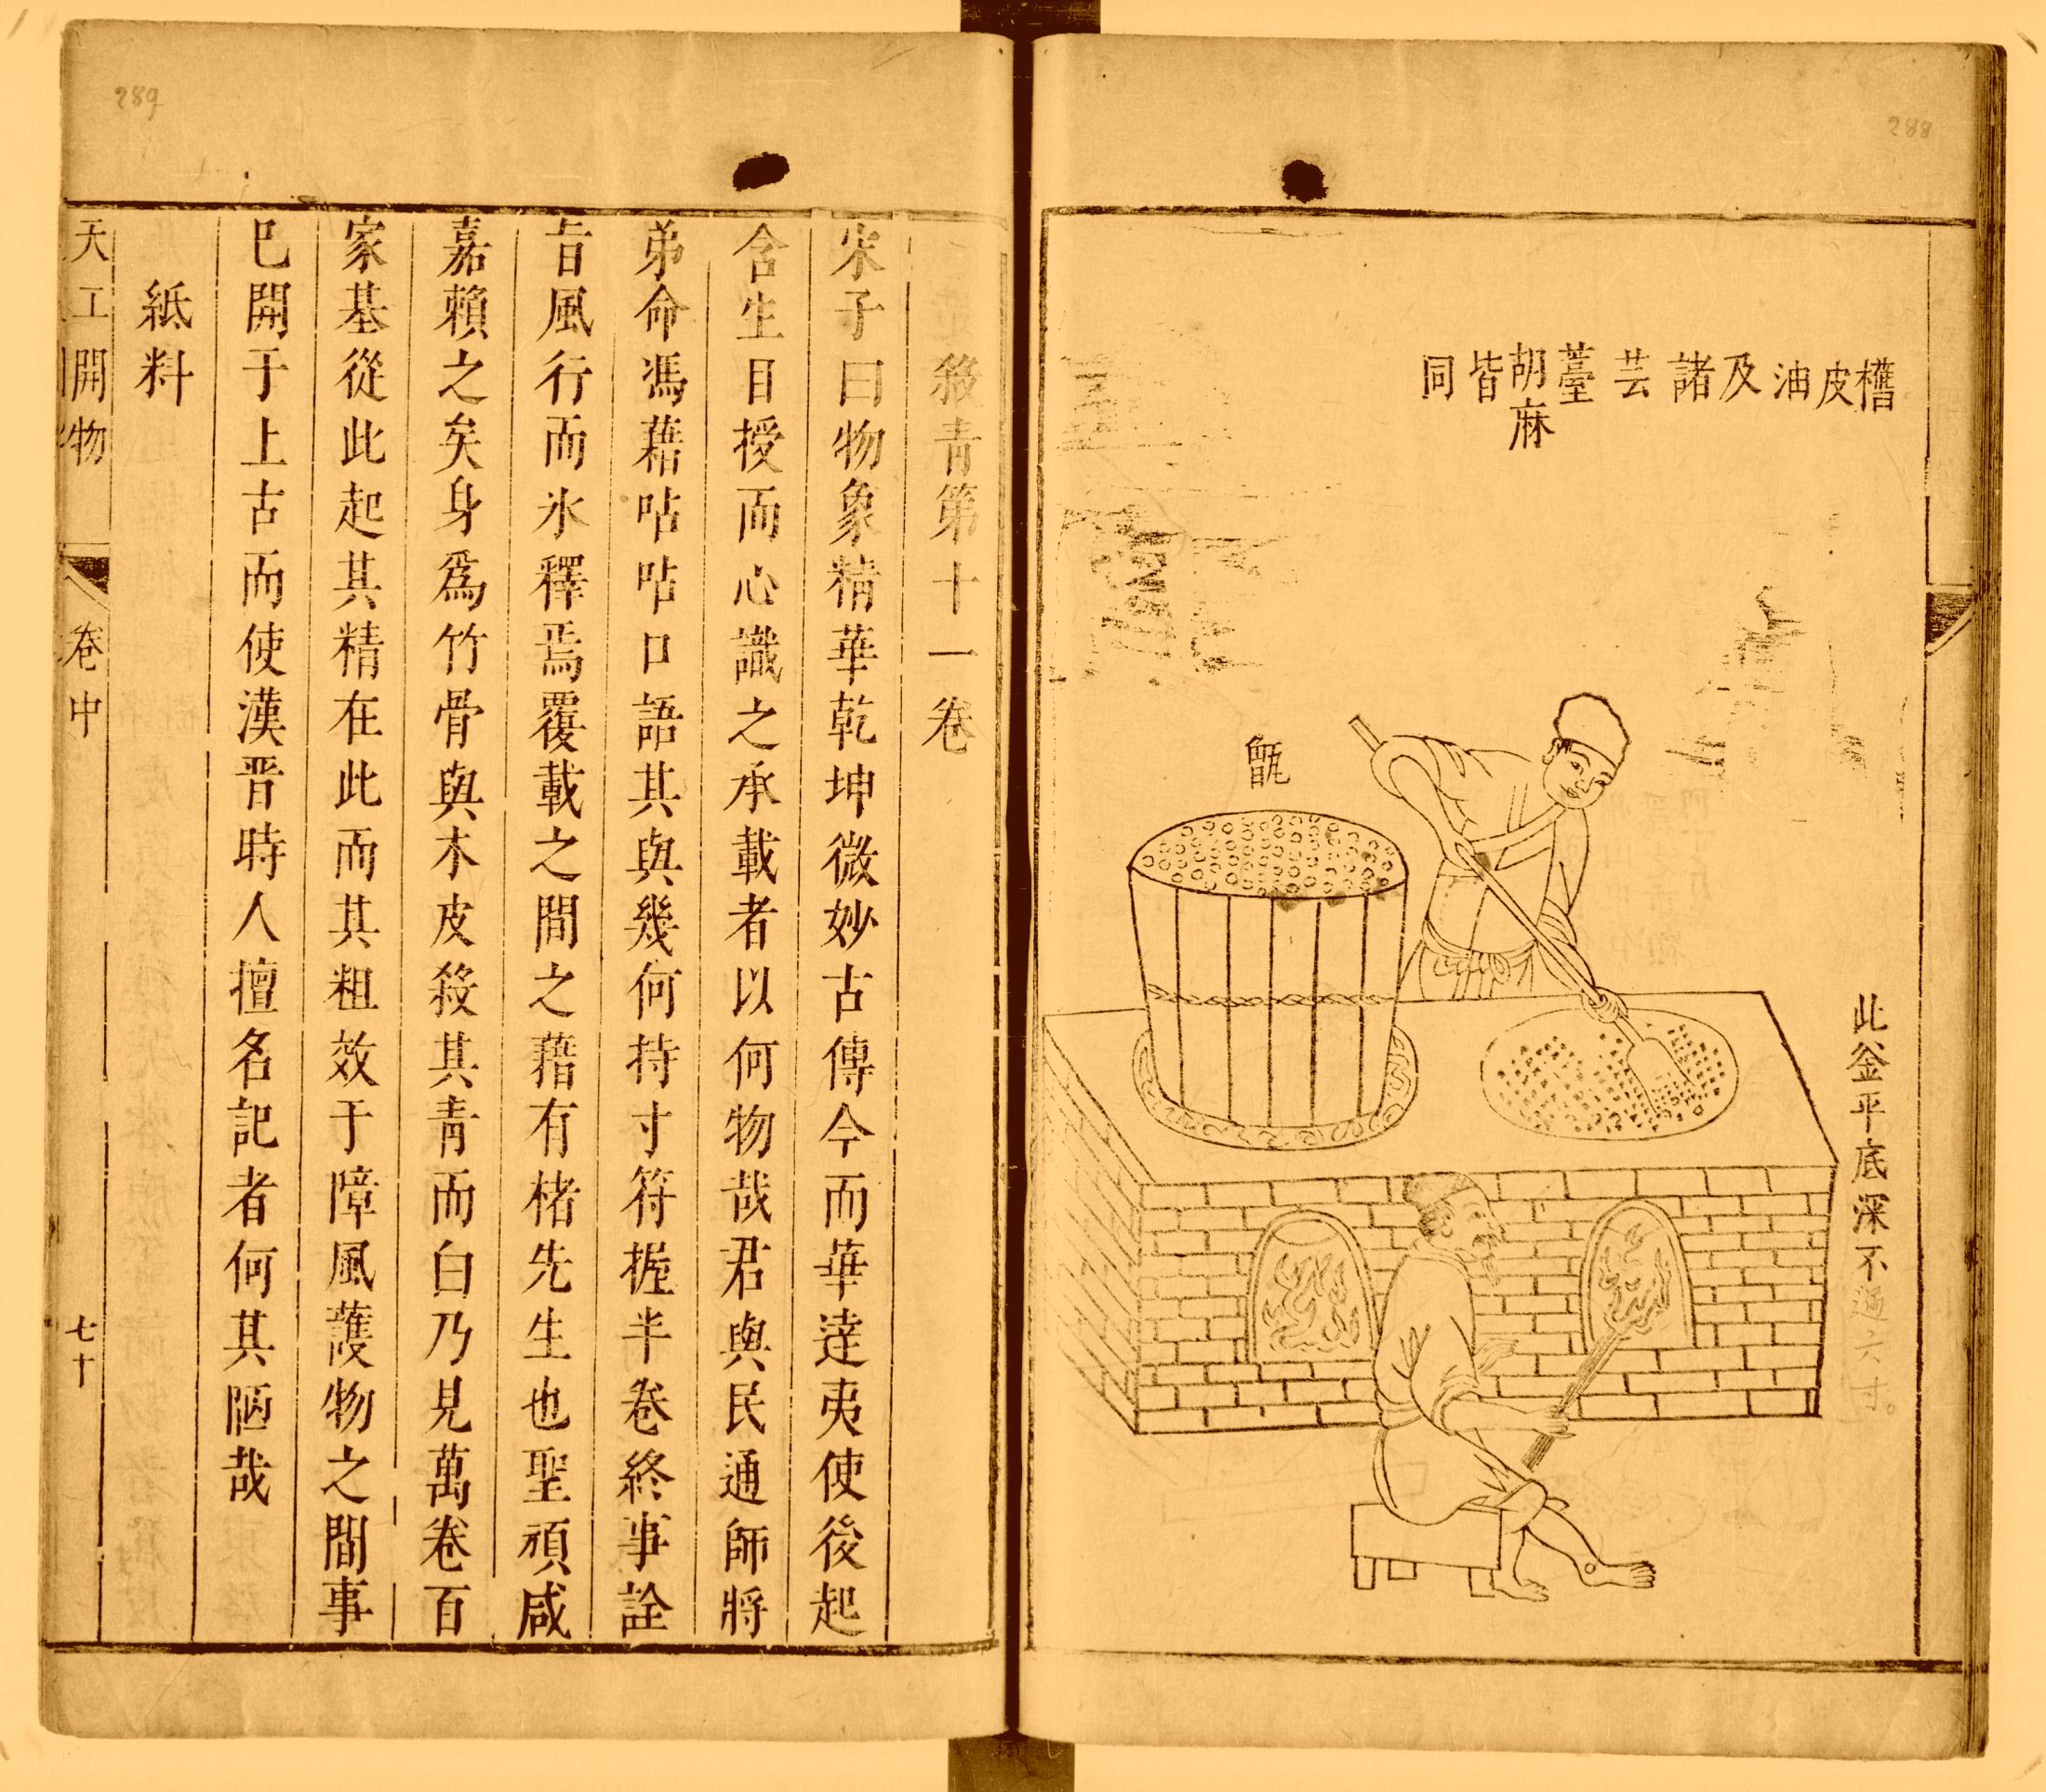 288
欍皮油及諸芸薹胡麻皆同
甑
此釜平底深不過六寸。
289
殺青第十一卷
宋子曰物象精華乾坤微妙古傳今而華達夷使後起
含生目授而心識之承載者以何物哉君與民通師將
弟命馮藉呫呫口語其與幾何持寸符握半卷終事詮
旨風行而氷釋焉覆載之間之藉有楮先生也聖頑咸
嘉賴之矣身爲竹骨與木皮殺其青而白乃見萬卷百
家基從此起其精在此而其粗效于障風護物之間事
巳開于上古而使漢晉時人擅名記者何其陋哉
紙料
天工開物 卷中 七十